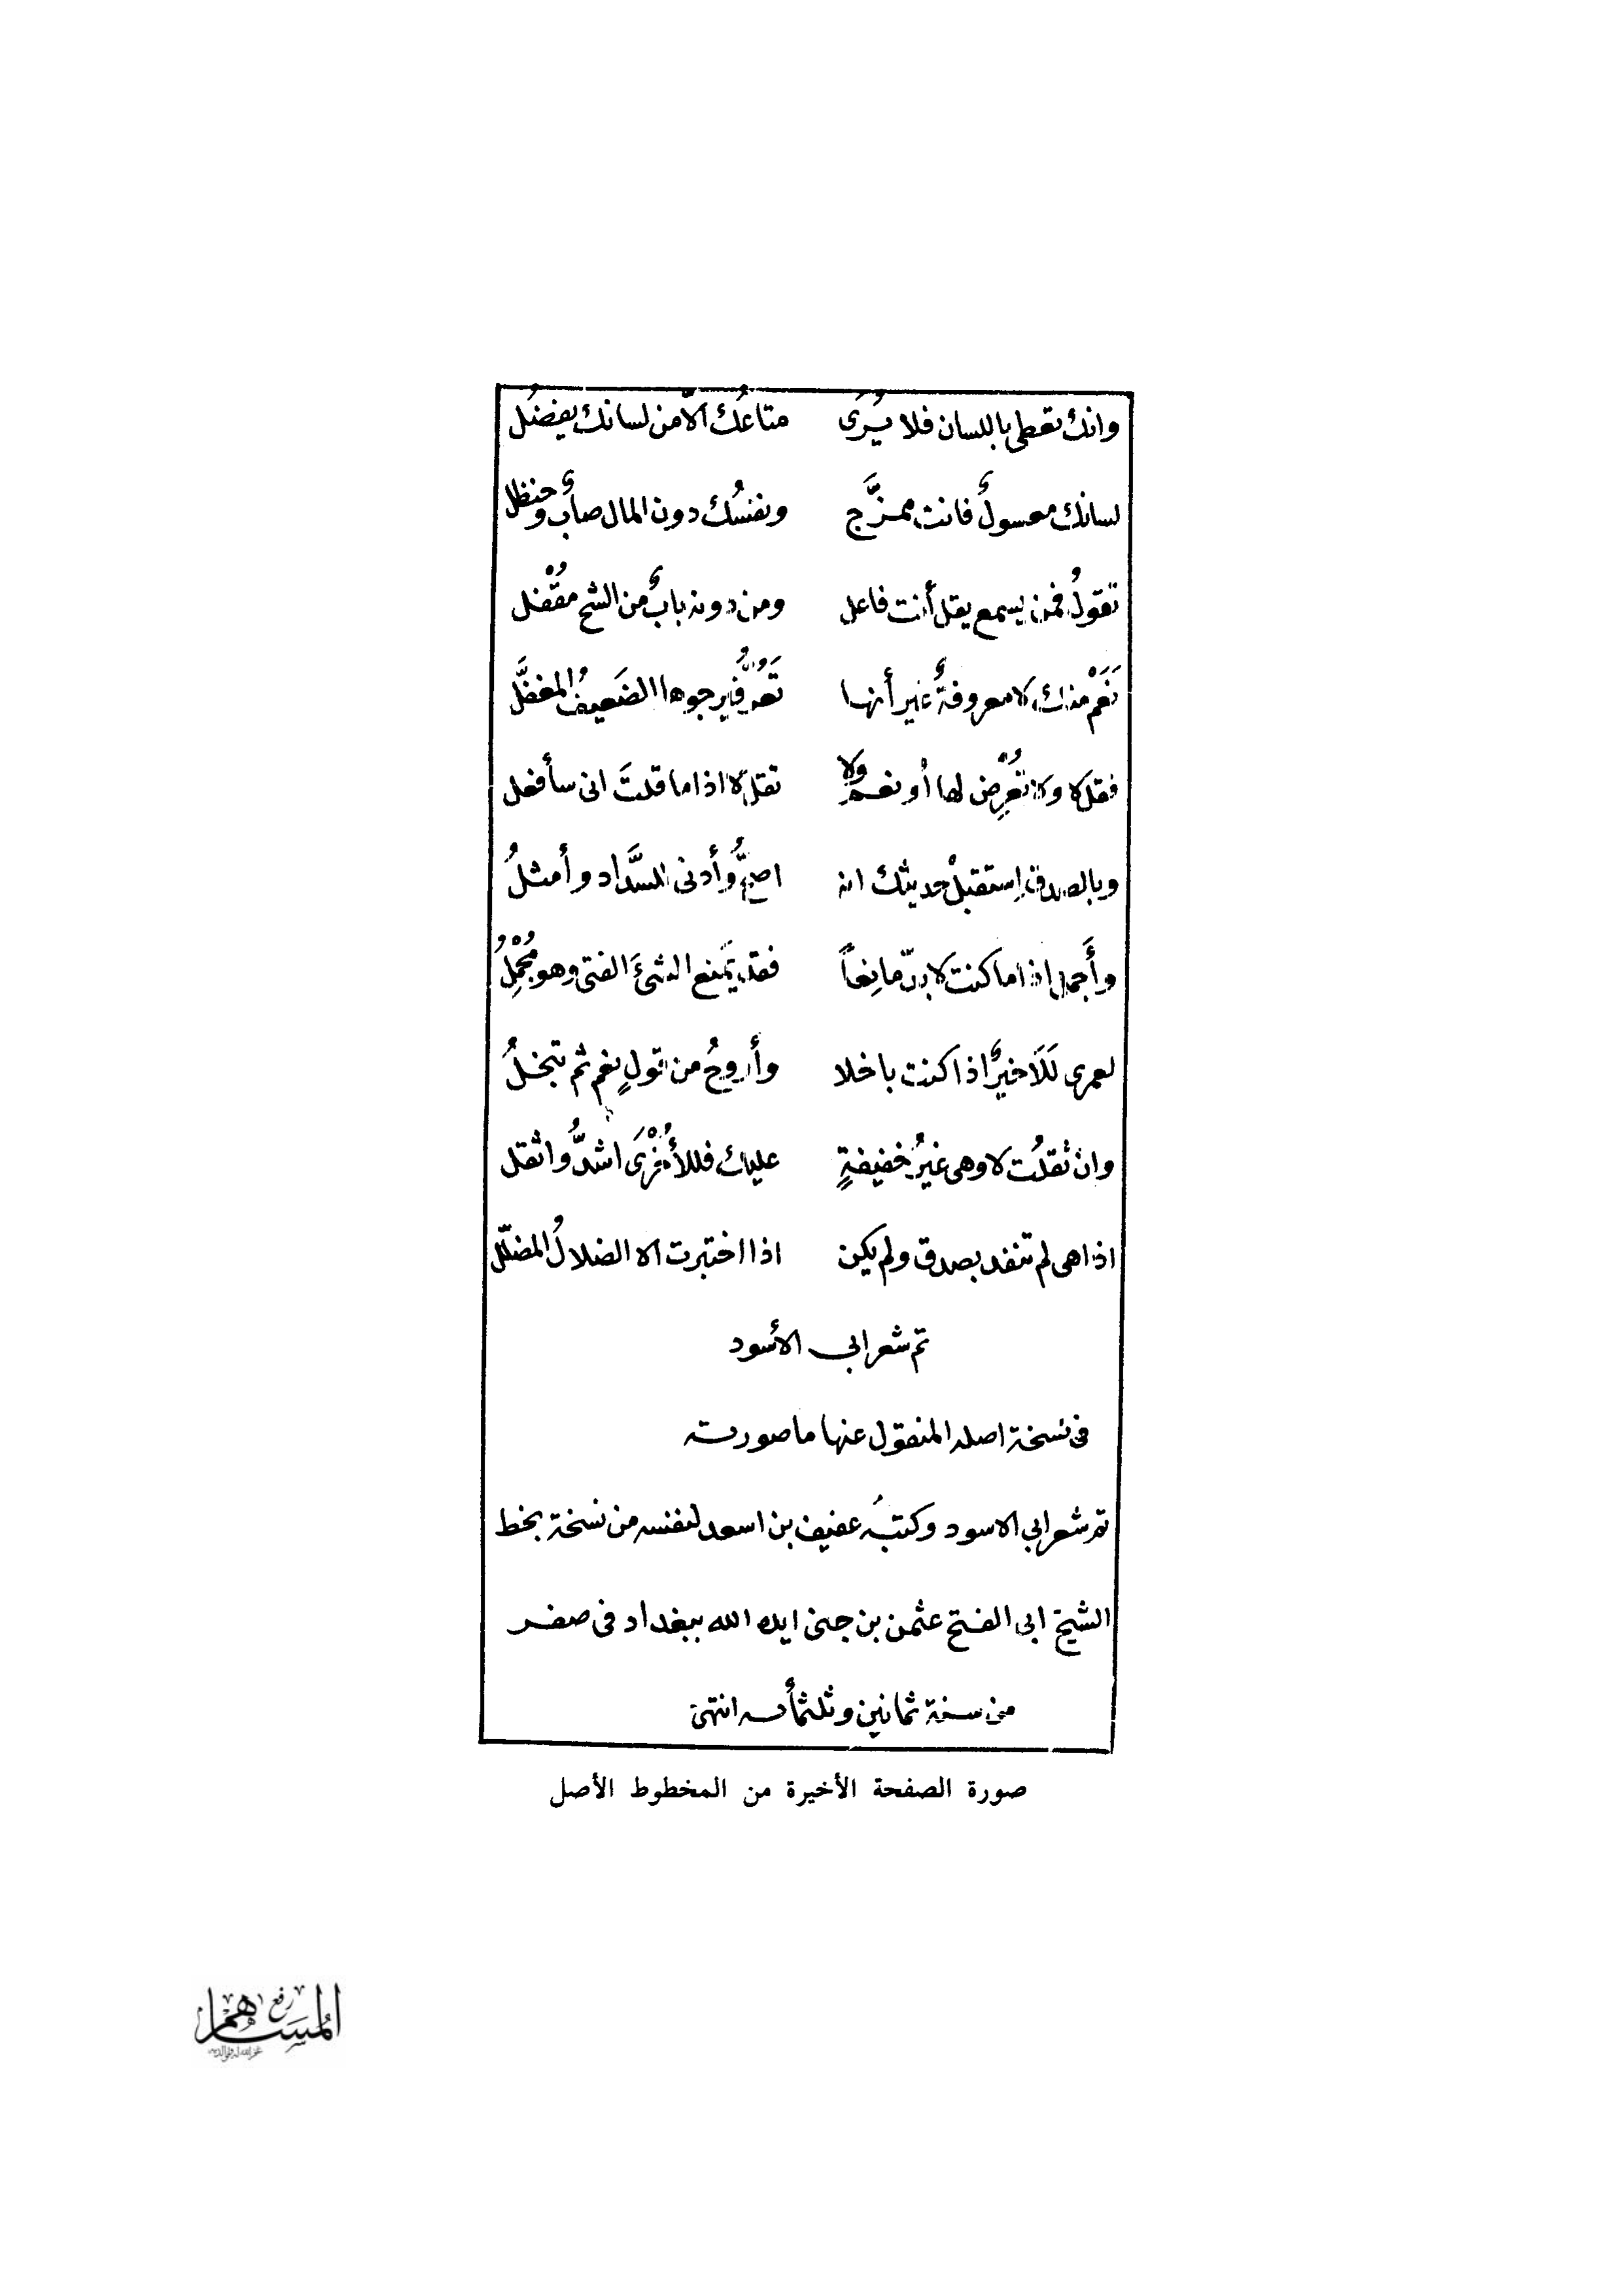 وانك تعطى باللسان فلا يُرَى متاعُك الاّ من لسانك يفضُل
لسانك معسولٌ فانت ممزَّج ونفسُك دون المال صابٌ وحنظل
تقولُ فمن يسمع يقل أنت فاعل ومن دونه بابٌ من الشح مُقْفل
نَعَمْ منك لا معروفةٌ غير أنها تَعُرُّ فيرجوها الضَعيفُ المغفَّل
فقل لا ولا تُعْرِض لها أو نعم ولا تقل لا اذا ما قلتَ انى سأفعل
وبالصدق اِستقبلْ حديثك انه اصحُّ وأدنى للسَّداد وأمثلُ
وأَجمل اذا ما كنت لا بدّ مانِعاً فقد يَمنع الشئَ الفتى وهو مُجْمِلُ
لعمرى لَلَا خيرٌ اذا كنت باخلا وأروحُ من قولٍ نعم ثم تبخلُ
وان ثقلُت لا وهى غيرُ خفيفةٍ عليك فللأُخْرَى اشدُّ واثقل
اذا هى لم تنفد بصدق ولم يكن اذا اختبرت الا الضلالُ المضلّل
تم شعر ابى الأسود
فى نسخة اصله المنقول عنها ما صورته
تم شعر ابي الاسود وكتبُه عفيف بن اسعد لنفسه من نسخة بخط
الشيخ ابى الفتح عثمن بن جنى ايده الله ببغداد فى صفر
من سنة ثمانين وثلثمأىه انتهى
صورة الصفحة الأخيرة من المخطوط الأصل
رفع
المساهم
غفر الله له ولوالديه